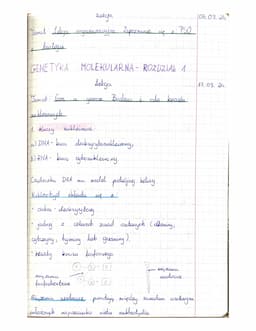 Lekcja 06.03.24
Temat: Lekcja organizacyjna. Zapoznanie się z PSO
z biologii
GENETYKA MOLEKULARNA - ROZDZIAŁ 1
Lekcja 13.03.24
Temat: Gen a genom. Budowa i rola kwasów
nukleinowych
1. Kwasy nukleinowe
a) DNA - kwas deoksyrybonukleinowy,
b) RNA - kwas rybonukleinowy.
Cząsteczka DNA ma model podwójnej helisy
Nukleotyd składa się z
- cukru - deoksyrybozy
- jednej z czterech zasad azotowych (adeniny,
cytozyny, tyminy lub guaniny).
- reszty kwasu fosforowego
wiązanie
fosfodiestrowe
wiązanie
wodorowe
Wiązania wodorowe pomiędzy zasadami azotowymi